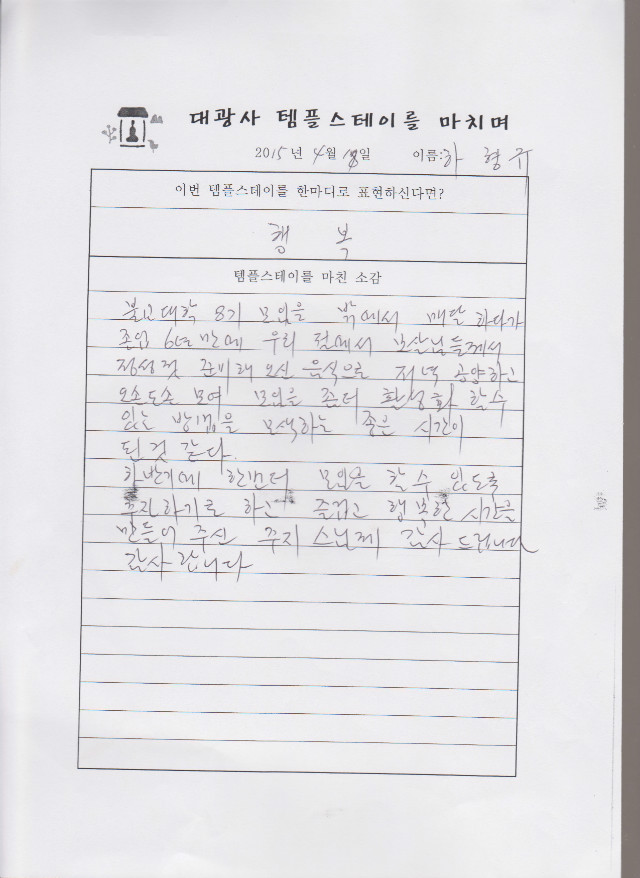 대광사 템플스테이를 마치며
2015년 4월 18일 이름:하 형규
이번 템플스테이를 한마디로 표현하신다면?
행 복
템플스테이를 마친 소감
불교대학 8기 모임을 밖에서 매달 하다가
졸업 6년만에 우리 절에서 보살님들께서
정성껏 준비해 오신 음식으로 저녁 공양하고
오손도손 모여 모임을 좀더 활성화 할수
있는 방법을 모색하는 좋은 시간이
된것 같다.
하반기에 한번더 모임을 할수 있도록
하기를 하고 즐겁고 행복한 시간을
만들어 주신 주지 스님께 감사 드립니다
감사합니다